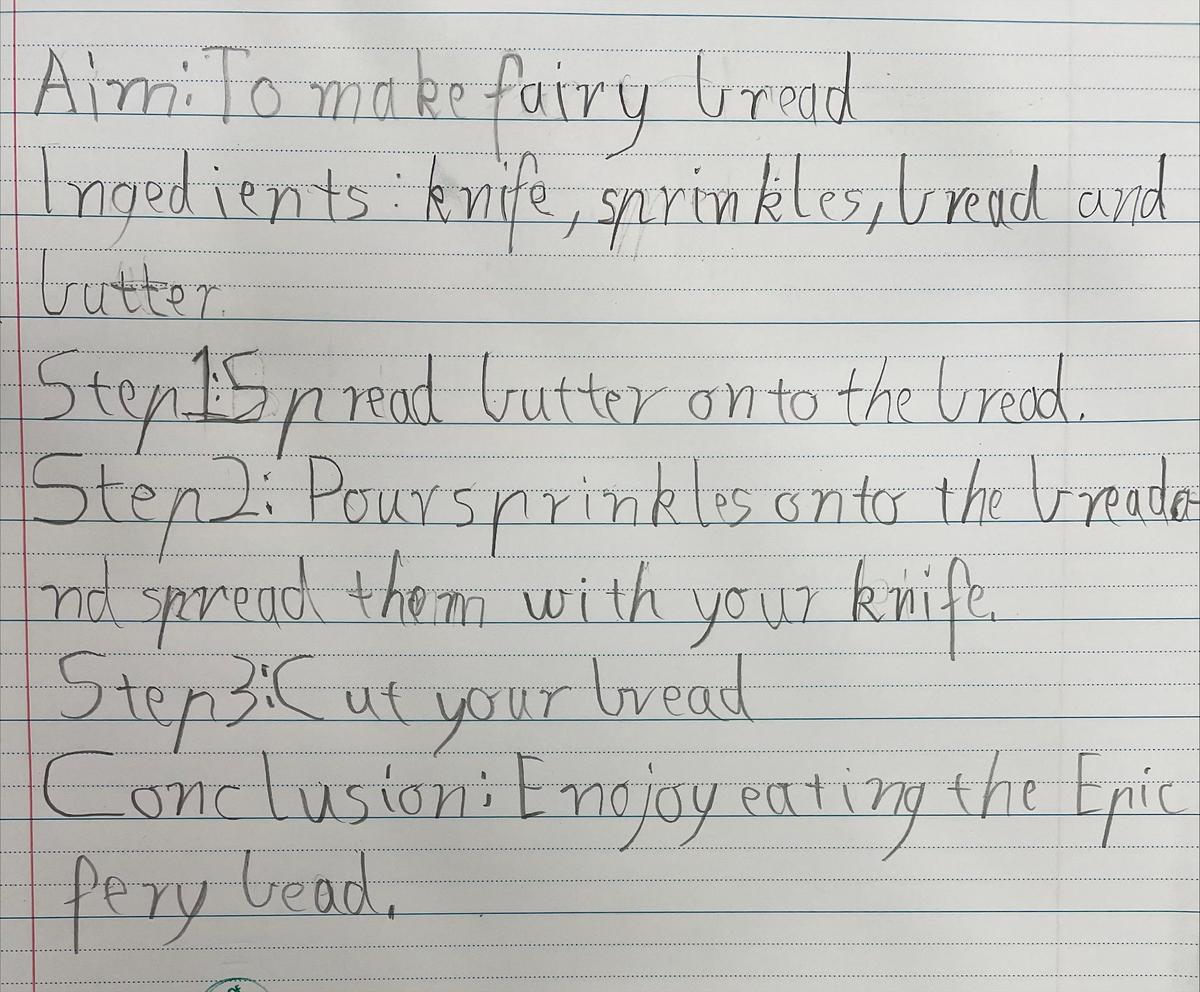 Aim: To make fairy bread
Ingedients: knife, sprinkles, bread and
butter.
Step 1: Spread butter onto the bread.
Step 2: Pour sprinkles onto the bread a-
nd spread them with your knife.
Step 3: Cut your bread
Conclusion: Enojoy eating the Epic
fery bead.